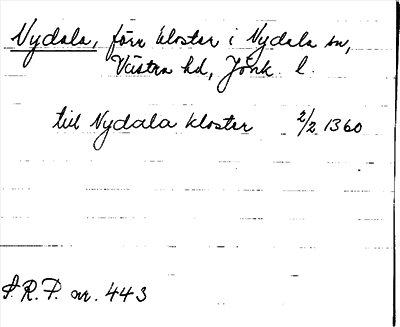 Nydala, förr kloster i Nydala sn,
Västra hd, Jönk. l.
till Nydala kloster 2/2 1360
S.R.P. nr. 443